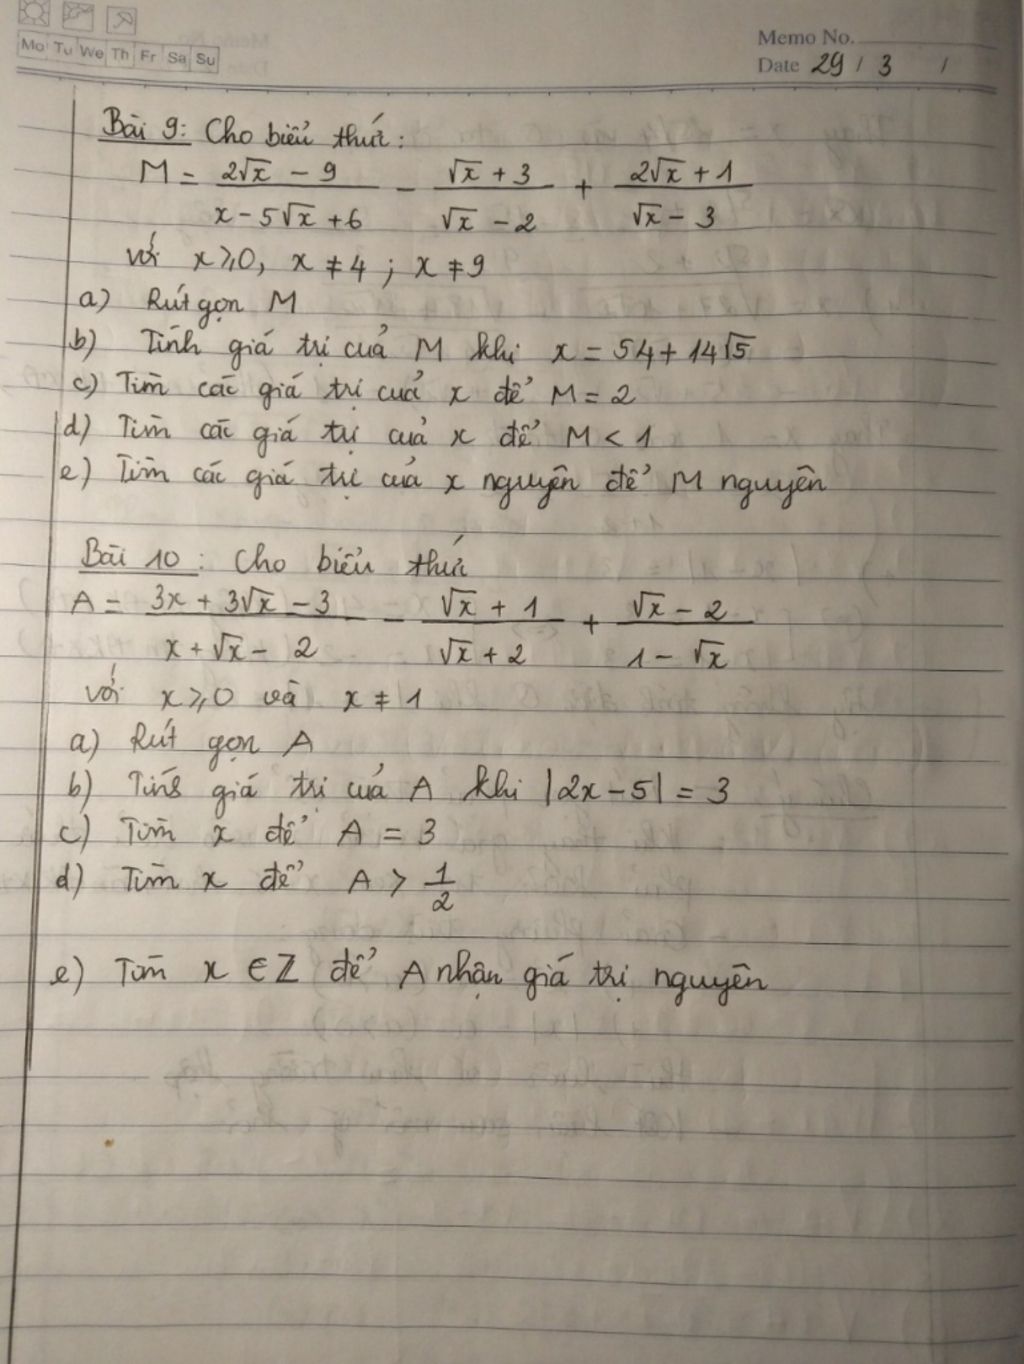 Mo Tu We Th Fr Sa Su
Memo No.
Date 29 / 3 /
Bài 9: Cho biểu thức:
M = (2√x - 9)/(x - 5√x + 6) - (√x + 3)/(√x - 2) + (2√x + 1)/(√x - 3)
với x ≥ 0, x ≠ 4 ; x ≠ 9
a) Rút gọn M
b) Tính giá trị của M khi x = 54 + 14√5
c) Tìm các giá trị của x để M = 2
d) Tìm các giá trị của x để M < 1
e) Tìm các giá trị của x nguyên để M nguyên
Bài 10: Cho biểu thức
A = (3x + 3√x - 3)/(x + √x - 2) - (√x + 1)/(√x + 2) + (√x - 2)/(1 - √x)
với x ≥ 0 và x ≠ 1
a) Rút gọn A
b) Tính giá trị của A khi |2x - 5| = 3
c) Tìm x để A = 3
d) Tìm x để A > 1/2
e) Tìm x ∈ Z để A nhận giá trị nguyên